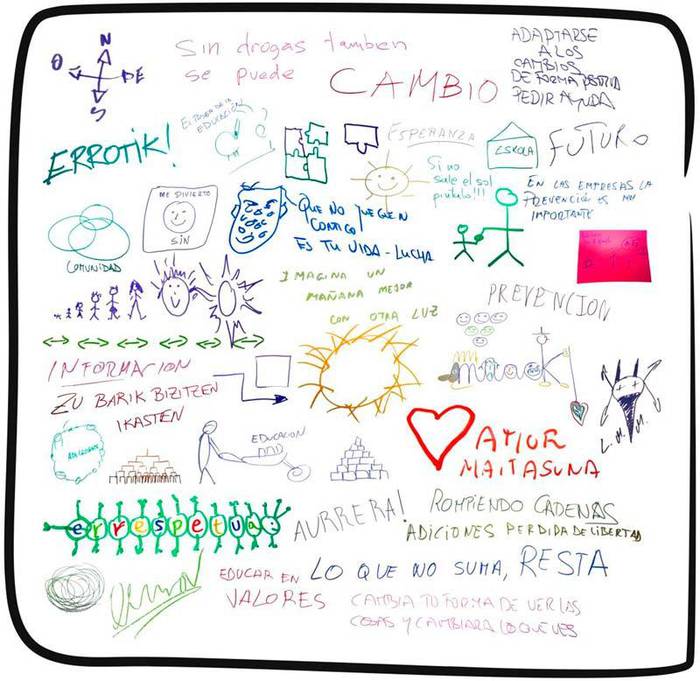 N
O
S
Sin drogas tambien
se puede
CAMBIO
ADAPTARSE
A LOS
CAMBIOS
DE FORMA POSITIVA
PEDIR AYUDA
ERROTIK!
EDUCACIÓN
ESPERANZA
ESKOLA
FUTURO
Si no
sale el sol
pintalo!!!
EN LAS EMPRESAS LA
PREVENCIÓ ES MUY
IMPORTANTE
ME DIVIERTO
SIN
QUE NO JUEGUEN
CONTIGO!
ES TU VIDA - LUCHA
COMUNIDAD
IMAGINA UN
MAÑANA MEJOR
CON OTRA LUZ
PREVENCION
INFORMACION
ZU BARIK BIZITZEN
IKASTEN
L.M.M.U
EDUCACION
AMOR
MAITASUNA
errespetua
AURRERA!
ROMPIENDO CADENAS
ADICIONES PERDIDA DE LIBERTAD
EDUCAR EN
VALORES
LO QUE NO SUMA, RESTA
CAMBIA TU FORMA DE VER LAS
COSAS Y CAMBIARA LO QUE VES